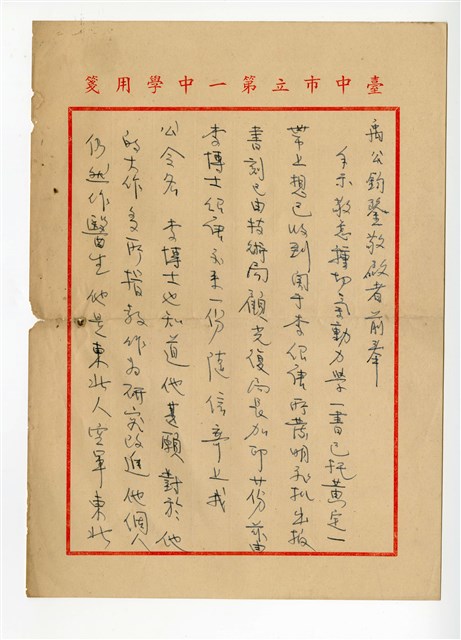 臺中市立第一中學用箋
禹公鈞鑒敬啟者前奉
手示敬悉 空氣動力學一書已托黃定一
帶上想已收到関于李 所著 批出版
書刻已由技術局顧光復局長加印廿份茲由
李博士 一份隨信奉上我
公令名 李博士也知道他甚願對於他
的大作多所指教作為研究改進他個人
仍然作醫生他是東北人空軍東北